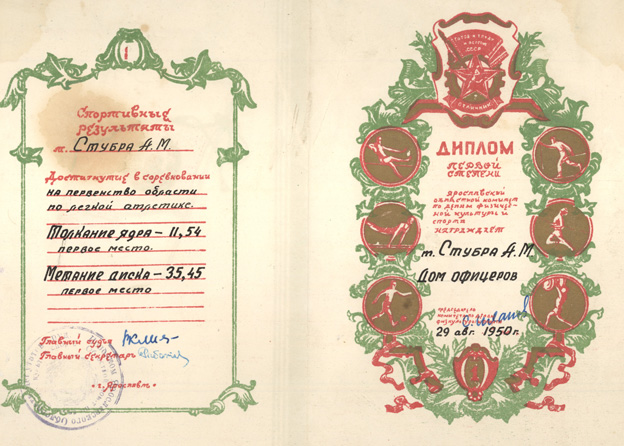 1
Спортивные
результаты
т. Стубра А.М.
Достигнутые в соревновании
на первенство области
по легкой атлетике.
Толкание ядра – 11,54
первое место.
Метание диска – 35,45
первое место
Главный судья
Главный секретарь
"г. Ярославль"
ГОТОВ К ТРУДУ
И ОБОРОНЕ
СССР
ОТЛИЧНИК
ДИПЛОМ
ПЕРВОЙ
СТЕПЕНИ
ЯРОСЛАВСКИЙ
областной комитет
по делам физичес-
кой культуры и
спорта
НАГРАЖДАЕТ
т. Стубра А.М.
Дом офицеров
29 авг. 1950 г.
1